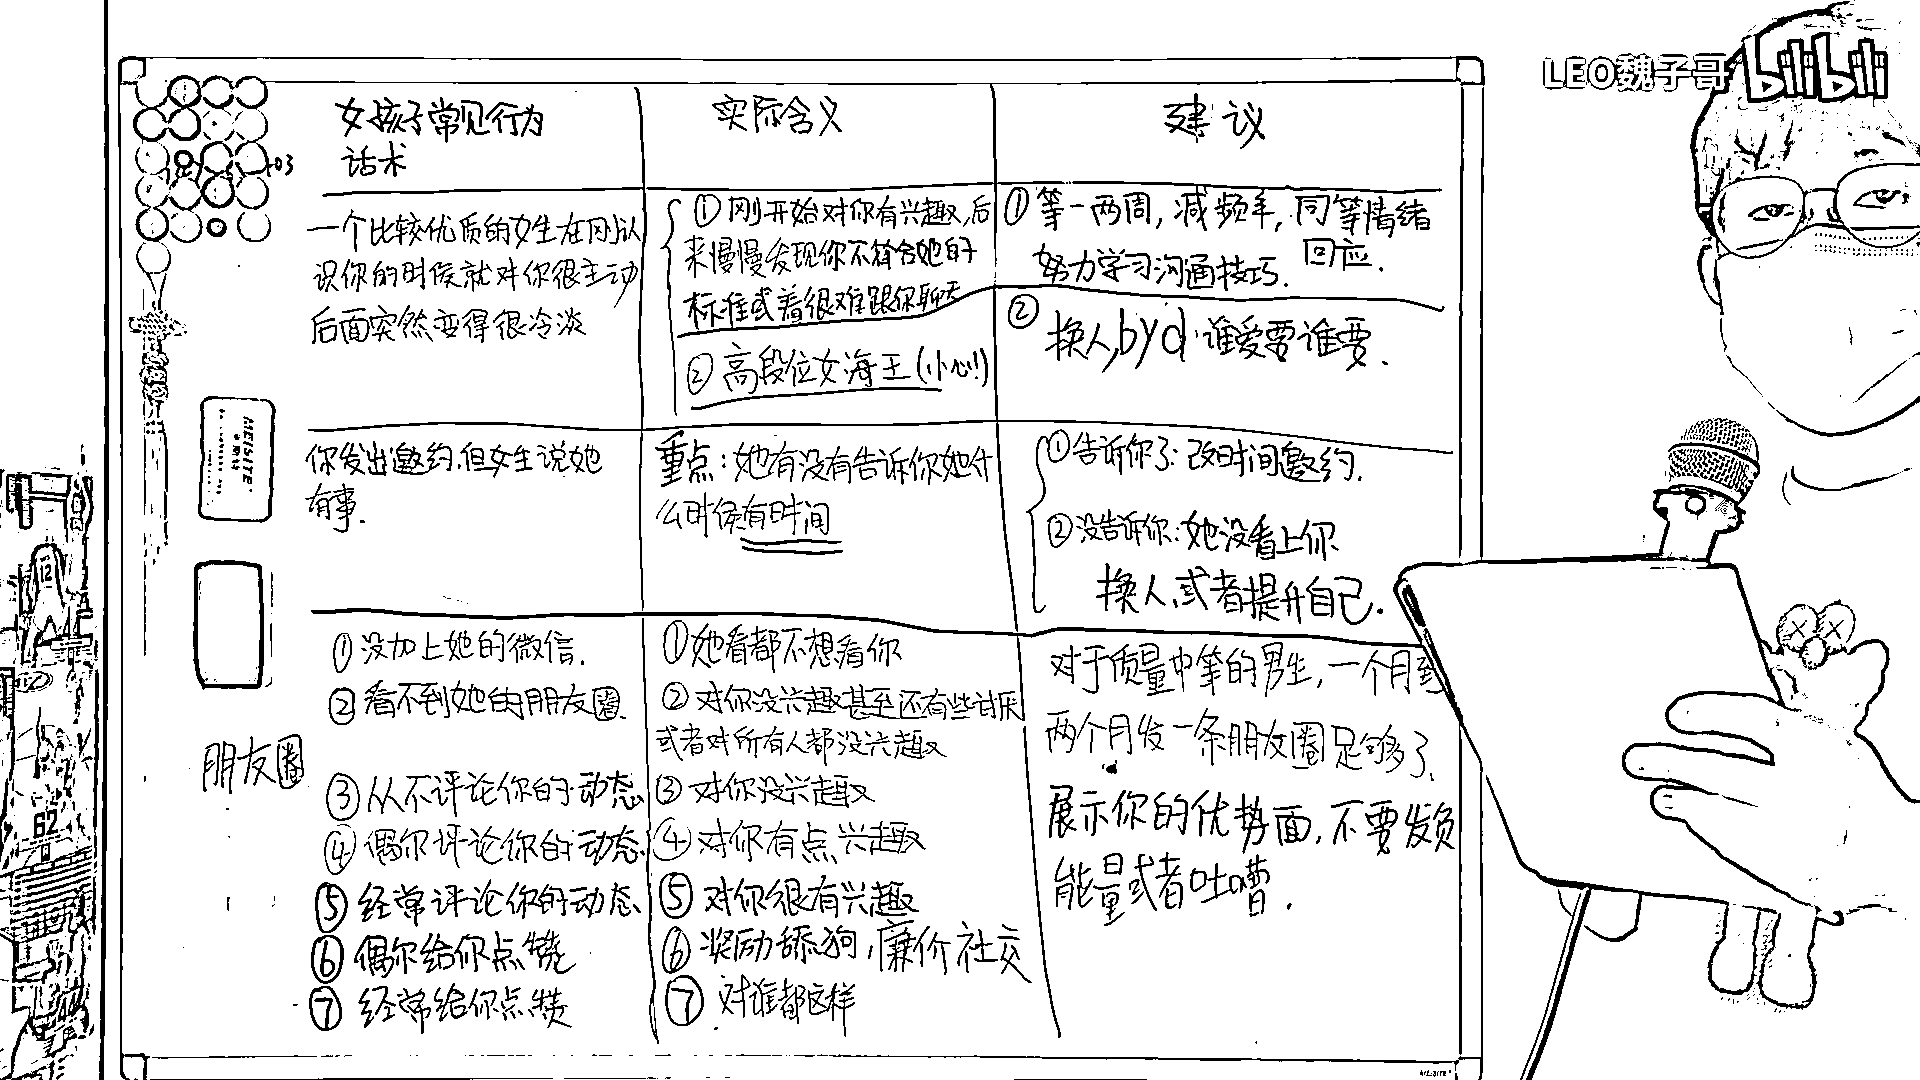 LEO魏子哥 bilibili
女孩子常见行为
话术
实际含义
建议
一个比较优质的女生在刚认
识你的时候就对你很主动
后面突然变得很冷淡
①刚开始对你有兴趣,后
来慢慢发现你不符合她的
标准或着很难跟你聊天
②高段位女海王(小心!)
①等一两周,减频率,同等情绪
回应.
努力学习沟通技巧.
②换人,byd.谁爱要谁要.
你发出邀约.但女生说她
有事.
重点:她有没有告诉你她什
么时侯有时间
①告诉你了:改时间邀约.
②没告诉你:她没看上你
换人,或者提升自己.
朋友圈
①没加上她的微信.
②看不到她的朋友圈.
③从不评论你的动态
④偶尔评论你的动态
⑤经常评论你的动态
⑥偶尔给你点赞
⑦经常给你点赞
①她看都不想看你
②对你没兴趣甚至还有些讨厌
或者对所有人都没兴趣
③对你没兴趣
④对你有点兴趣
⑤对你很有兴趣
⑥奖励舔狗,廉价社交
⑦对谁都这样
对于质量中等的男生,一个月到
两个月发一条朋友圈足够了.
展示你的优势面,不要发负
能量或者吐嘈.
MEISITE
12
62